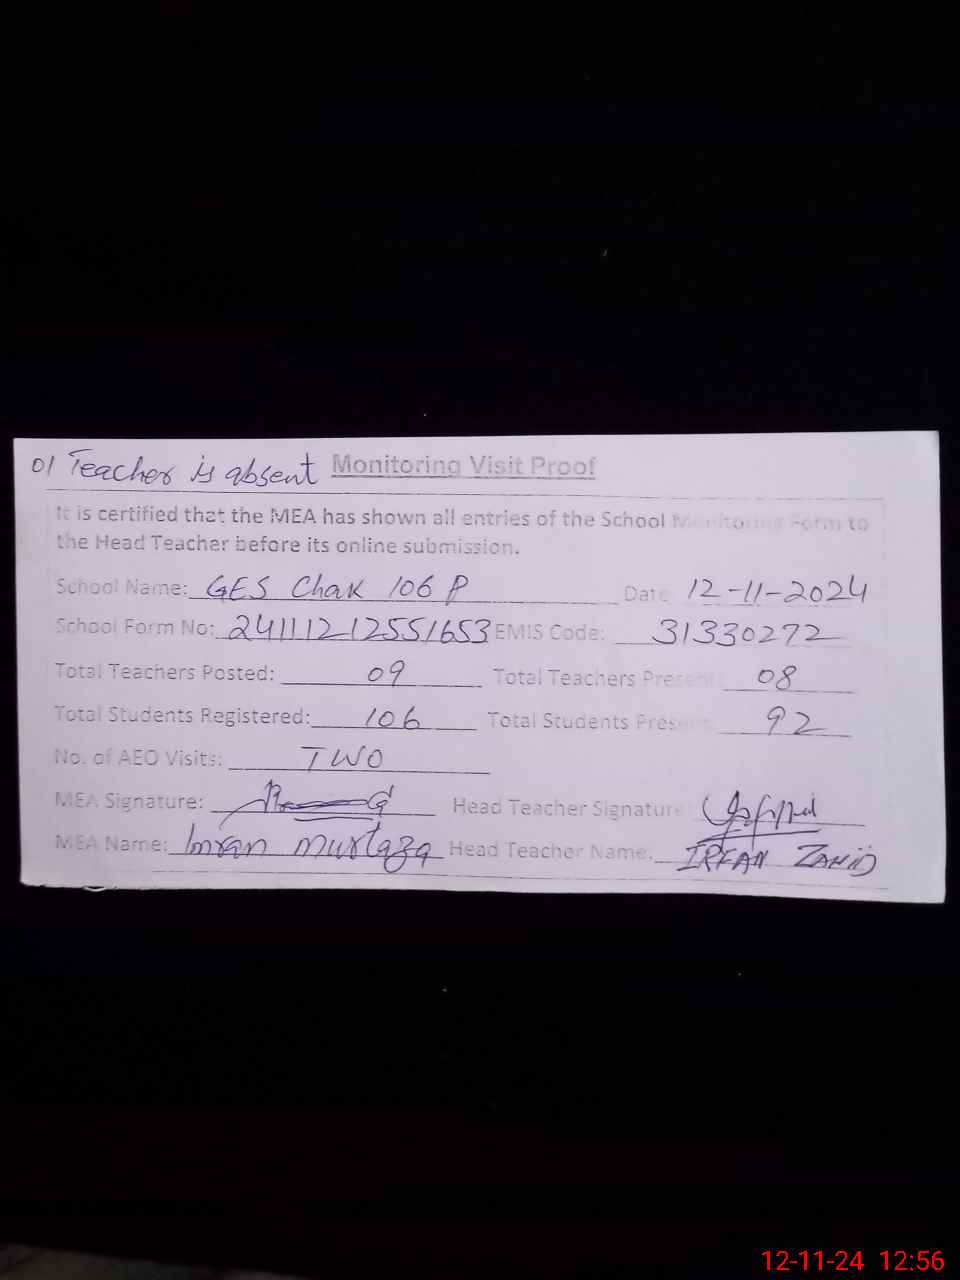 01 Teacher is absent Monitoring Visit Proof
It is certified that the MEA has shown all entries of the School Monitoring Form to
the Head Teacher before its online submission.
School Name: GES Chak 106 P Date 12-11-2024
School Form No: 241112125551653 EMIS Code: 31330272
Total Teachers Posted: 09 Total Teachers Present 08
Total Students Registered: 106 Total Students Present 92
No. of AEO Visits: TWO
MEA Signature: Head Teacher Signature
MEA Name: Imran Murtaza Head Teacher Name: IRFAN ZAHID
12-11-24 12:56